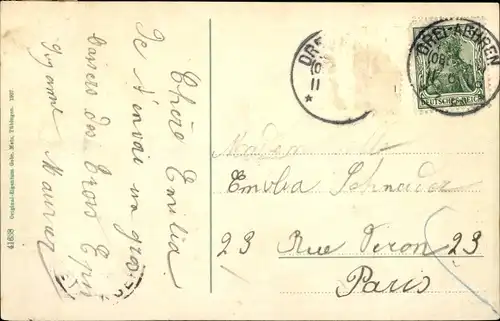 Chère Emilia
Je t'envai un gros
baisers des Tros Epin
Maurice
41608 Original-Eigentum Gebr. Metz, Tübingen. 1907.
DREI-AEHREN
DEUTSCHES REICH
Mademoiselle
Emilia Schnader
23 Rue Veron 23
Paris